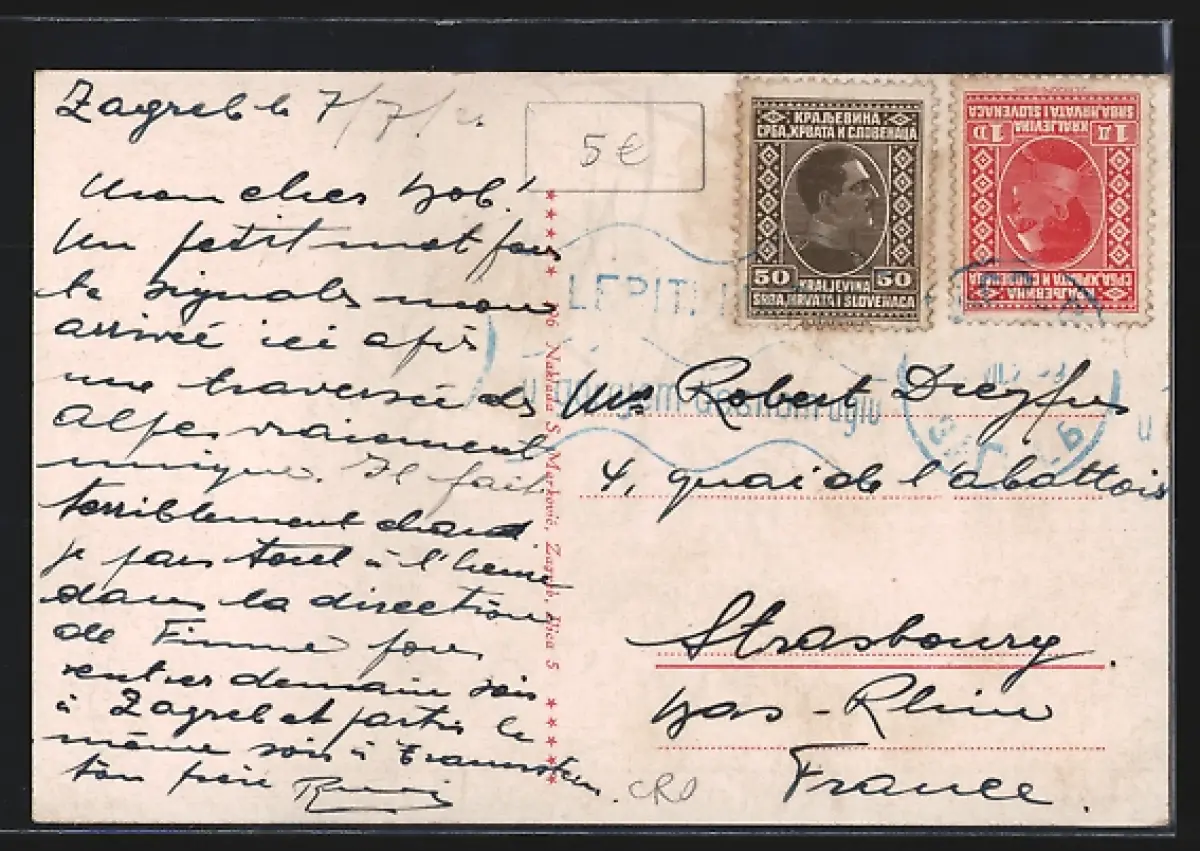 Zagreb le 7/7/
Mon cher Bob!
Un petit mot pour
te signaler mon
arrivée ici après
une traversée des
Alpes vraiment
unique. Il fait
terriblement chaud.
je pars tout à l'heure
dans la direction
de Fiume pour
rentrer demain soir
à Zagreb et partir le
même soir à
ton frère
5 €
КРАЉЕВИНА
СРБА, ХРВАТА И СЛОВЕНАЦА
50 50
KRALJEVINA
SRBA, HRVATA I SLOVENACA
СРБА, ХРВАТА И СЛОВЕНАЦА
КРАЉЕВИНА
KRALJEVINA
SRBA, HRVATA I SLOVENACA
1 Д 1 D
LEPIT
u gornjem desnom uglu
u
Naklada S. Marković, Zagreb, Ilica 5
Mr Robert Dreyfus
4, quai de l'abattoir
Strasbourg.
Bas-Rhin
France.
CRO